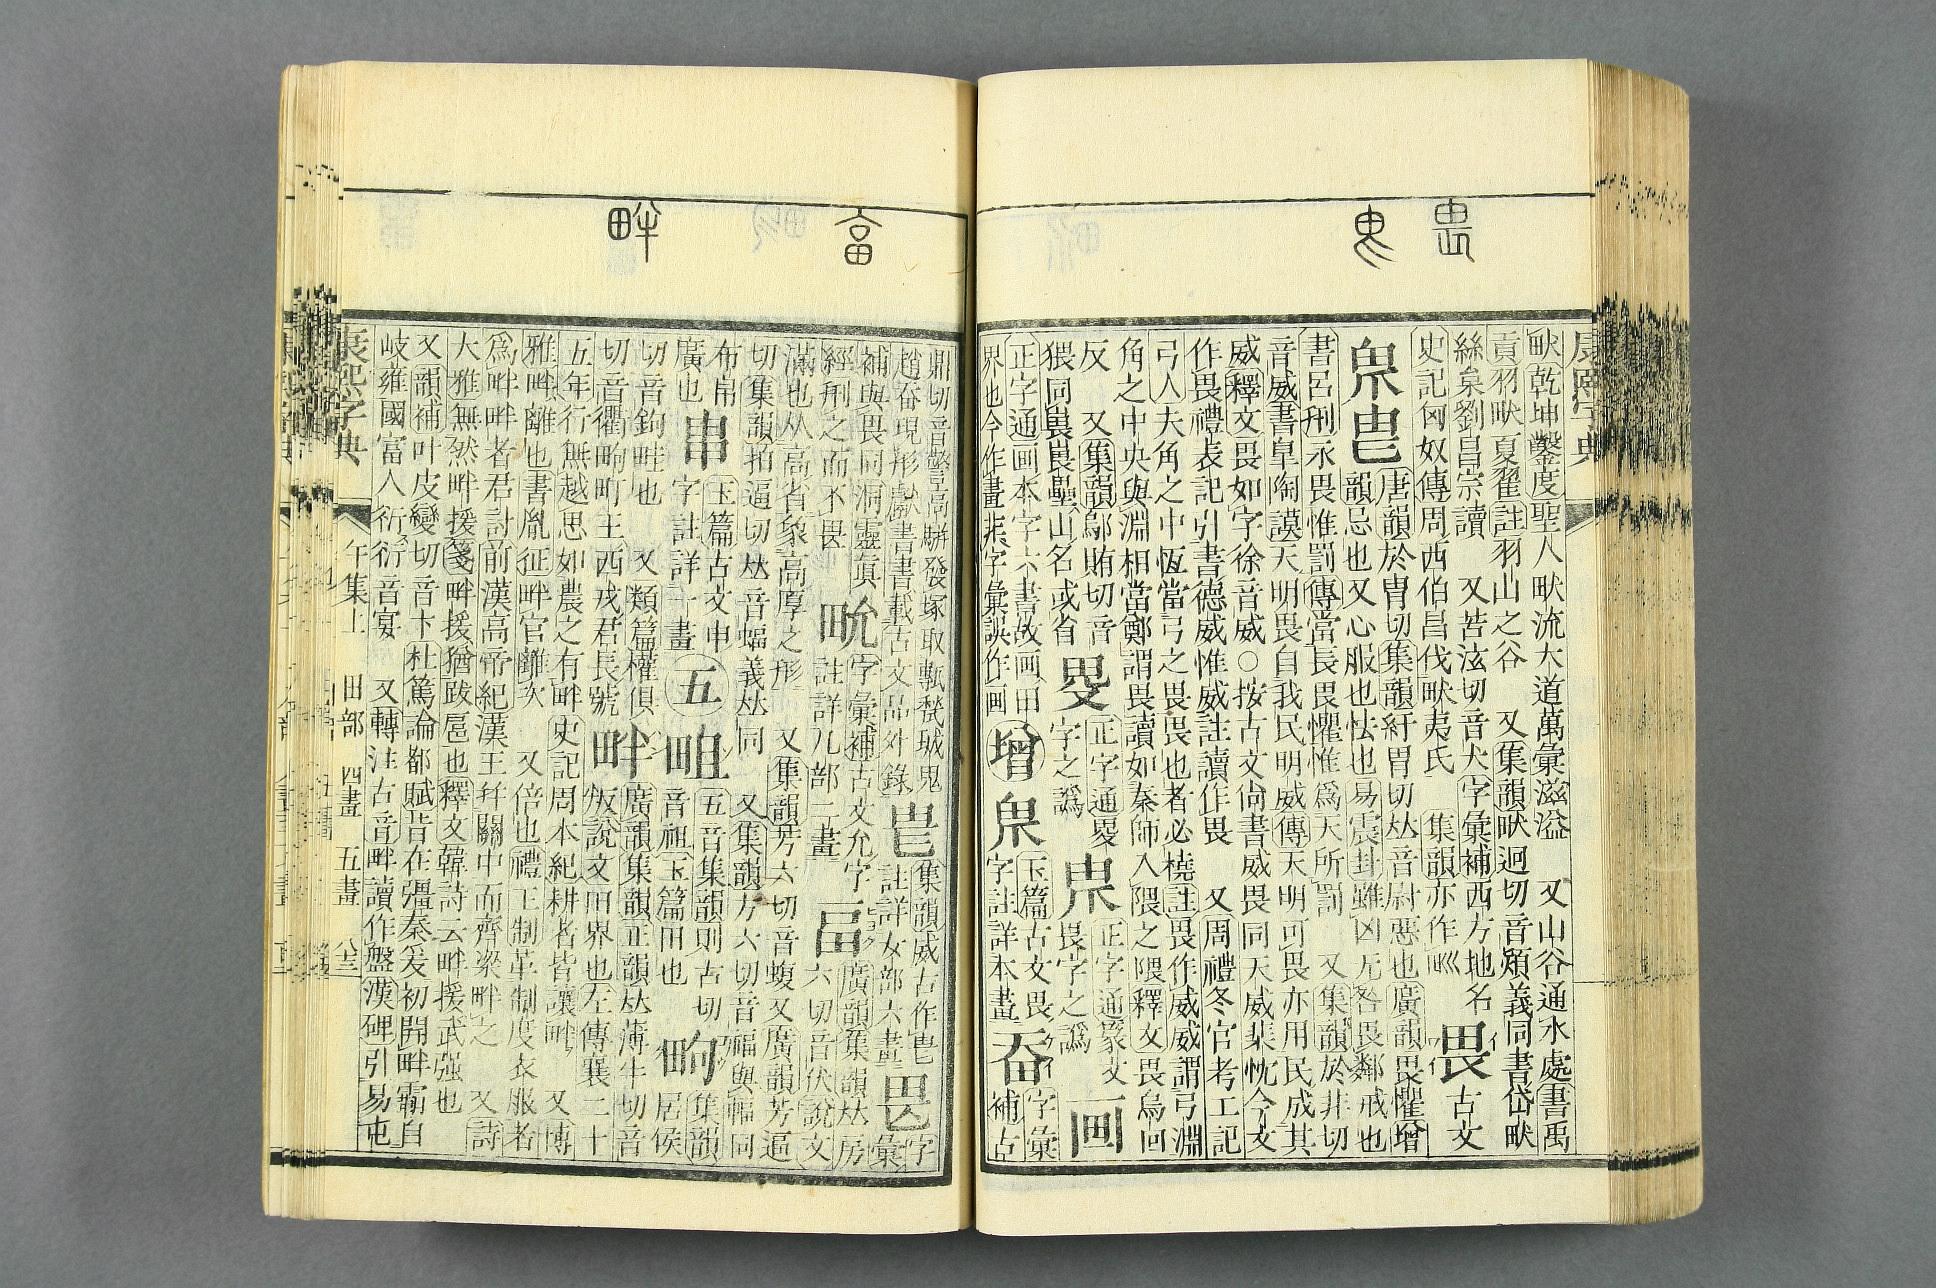 畏
鬼
康熙字典
畎乾坤鑿度聖人畎流大道萬彙滋溢 又山谷通水處書禹
貢羽畎夏翟註羽山之谷 又集韻畎迥切音熲義同書岱畎
絲枲劉昌宗讀 又苦泫切音犬字彙補西方地名
史記匈奴傳周西伯昌伐畎夷氏 集韻亦作巛 畏 古文
唐韻於胄切集韻紆胃切𠀤音尉惡也廣韻畏懼增
韻忌也又心服也怯也易震卦雖凶无咎畏鄰戒也
書呂刑永畏惟罰傳當長畏懼惟爲天所罰 又集韻於非切
音威書皐陶謨天明畏自我民明威傳天明可畏亦用民成其
威釋文畏如字徐音威○按古文尙書威畏同天威棐忱今文
作畏禮表記引書德威惟威註讀作畏 又周禮冬官考工記
弓人夫角之中恆當弓之畏畏也者必橈註畏作威威謂弓淵
角之中央與淵相當鄭謂畏讀如秦師入隈之隈釋文畏烏回
反 又集韻鄔賄切音
猥同嵔嵔壘山名或省
正字通畟
字之譌
正字通篆文
畏字之譌 画
正字通画本字六書故画田
界也今作畫非字彙誤作画
增
玉篇古文畏
字註詳本畫
字彙
補古
畐 畔
鼎切音𥌓高駢發塚取甎甃城鬼
趙畚現形獻書書載古文品外錄
集韻威古作
註詳女部六畫
字
彙
補與畏同洞靈眞
經刑之而不畏
畩
字彙補古文允字
註詳儿部二畫
畐
廣韻集韻𠀤房
六切音伏說文
滿也从高省象高厚之形 又集韻芳六切音蝮又廣韻芳逼
切集韻拍逼切𠀤音愊義𠀤同 又集韻方六切音福與幅同
布帛
廣也
玉篇古文申
字註詳一畫
五
五音集韻則古切
音祖玉篇田也
畃
集韻
居侯
切音鉤畦也 又類篇權俱
切音衢畃町王西戎君長號
畔
廣韻集韻正韻𠀤薄半切音
叛說文田界也左傳襄二十
五年行無越思如農之有畔史記周本紀耕者皆讓畔 又博
雅畔離也書胤征畔官離次 又倍也禮王制革制度衣服者
爲畔畔者君討前漢高帝紀漢王幷關中而齊梁畔之 又詩
大雅無然畔援箋畔援猶跋扈也釋文韓詩云畔援武强也
又韻補叶皮變切音卞杜篤論都賦皆在彊秦爰初開畔霸自
岐雍國富人衍衍音宴 又轉注古音畔讀作盤漢碑引易屯
康熙字典 午集上 田部 四畫 五畫 八三